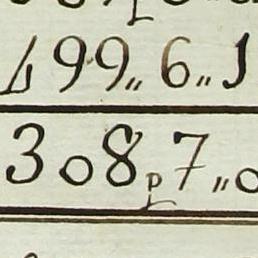 499,, 6,, 1
308 p 7,, 0